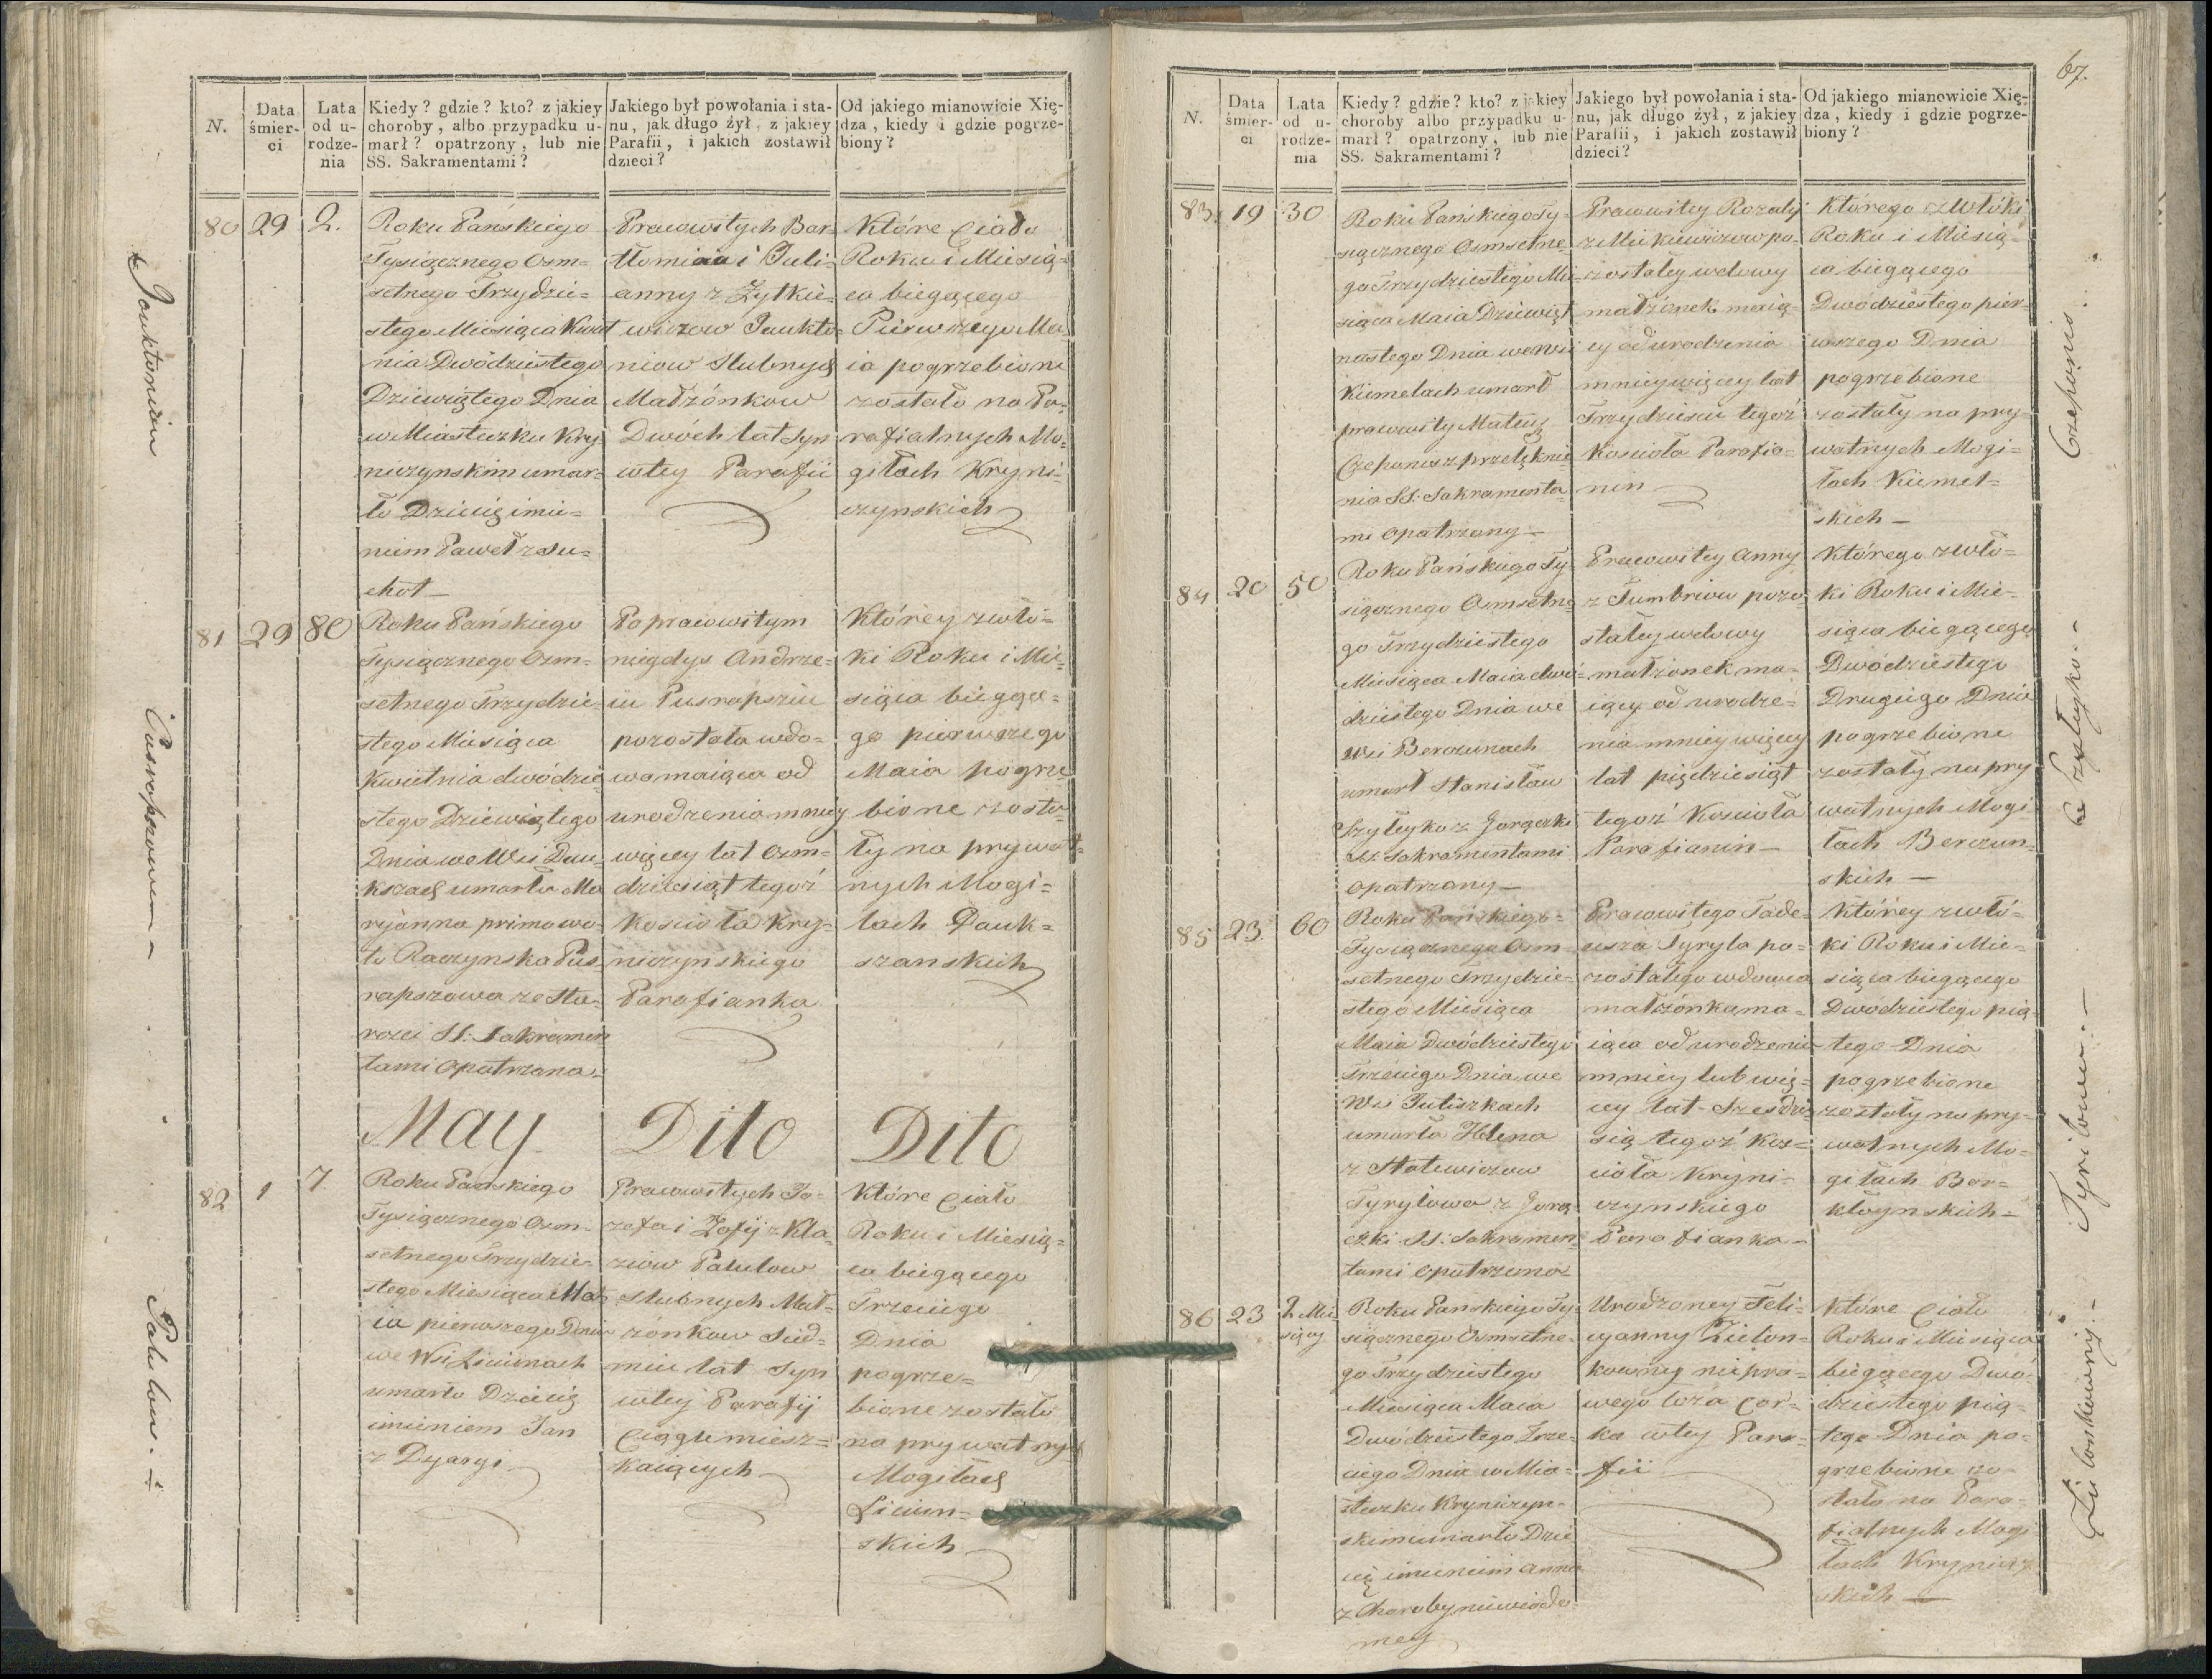 67.
N.
Data śmier-ci
Lata od u-rodze-nia
Kiedy? gdzie? kto? z jakiey
choroby, albo przypadku u-
marł? opatrzony, lub nie
SS. Sakramentami?
Jakiego był powołania i sta-
nu, jak długo żył, z jakiey
Parafii, i jakich zostawił
dzieci?
Od jakiego mianowicie Xię-
dza, kiedy i gdzie pogrze-
biony?
80
29
2.
Roku Pańskiego
Tysiącznego Osm=
setnego Trzydzie=
stego Miesiąca Kwiet
nia Dwódziestego
Dziewiątego Dnia
w Miasteczku Kry
niczynskim umar=
ło Dziecię imie=
niem Paweł z su=
chot
Pracowitych Bar=
tłomieia i Juli=
anny z Zytkie=
wiczow Jaukto=
niow Slubnych
Małżónkow
Dwóch lat Syn
wtey Parafii
Które Ciało
Roku i Miesią=
ca biegącego
Pierwszego Ma
ia pogrzebione
zostało na Pa=
rafialnych Mo=
giłach Kryni=
czynskich
Jauktoniow
81
29
80
Roku Pańskiego
Tysiącznego Osm=
setnego Trzydzie=
stego Miesiąca
Kwietnia dwódzie
stego Dziewiątego
Dnia we Wsi Dau=
kszach umarła Ma
ryanna primo wo=
to Raczynska Pus=
rapszowa ze Sta=
rości SS. Sakramen
tami Opatrzona=
Po pracowitym
niegdys Andrze=
iu Pusrapsziu
pozostała wdo=
wa maiąca od
urodzenia mniey
więcey lat Osm=
dziesiąt tegoż
Koscioła Kry=
niczynskiego
Parafianka
Którey zwło=
ki Roku i Mie=
siąca biegące=
go pierwszego
Maia pogrze
bione zosta=
ły na prywat=
nych Mogi=
łach Dauk=
szanskich
Pusrapszowa
May
Dito
Dito
82
1
7
Roku Pańskiego
Tysiącznego Osm=
setnego Trzydzie=
stego Miesiąca Ma
ia pierwszego Dnia
we Wsi Liciunach
umarło Dziecię
imieniem Jan
z Dyaryi
Pracowitych Jo=
zefa i Zofij z Kla=
ziow Patulow
Slubnych Mał=
żónkow Sied=
miu lat Syn
wtey Parafij
Ciągle miesz=
kaiących
Które Ciało
Roku i Miesią=
ca biegącego
Trzeciego
Dnia
pogrze=
bione zostało
na prywatnych
Mogiłach
Liciun=
skich
Patulow.
N.
Data śmier-ci
Lata od u-rodze-nia
Kiedy? gdzie? kto? z jakiey
choroby albo przypadku u-
marł? opatrzony, lub nie
SS. Sakramentami?
Jakiego był powołania i sta-
nu, jak długo żył, z jakiey
Parafii, i jakich zostawił
dzieci?
Od jakiego mianowicie Xię-
dza, kiedy i gdzie pogrze-
biony?
83.
19
30
Roku Pańskiego Ty=
siącznego Osmsetne
go Trzydziestego Mie
siąca Maia Dziewięt
nastego Dnia we Wsi
Kiemelach umarł
pracowity Mateusz
Czeponis z przelęknie
nia SS. Sakramenta=
mi Opatrzony
Pracowitey Rozalij
z Mickiewiczow po=
zostałey wdowy
małżónek maią=
cy od urodzenia
mniey więcey lat
Trzydzieści tegoż
Kosciola Parafia=
nin
Którego zwłoki
Roku i Miesią=
ca biegącego
Dwódziestego pier=
wszego Dnia
pogrzebione
zostały na pry
watnych Mogi=
łach Kiemel=
skich
Czeponis
84
20
50
Roku Pańskiego Ty
siącznego Osmsetne
go Trzydziestego
Miesiąca Maia dwó=
dziestego Dnia we
Wsi Berczunach
umarł Stanisław
Szyłeyko z Gorączki
SS. Sakramentami
Opatrzony
Pracowitey Anny
z Tumbriow pozo=
stałey wdowy
małżonek ma=
iący od urodze=
nia mniey więcey
lat pięćdziesiąt
tegoż Kościoła
Parafianin
Którego zwło=
ki Roku i Mie=
siąca biegącego
Dwódziestego
Drugiego Dnia
pogrzebione
zostały na pry
watnych Mogi
łach Berczun=
skich
Szyłeyko
85
23.
60
Roku Pańskiego
Tysiącznego Osm
setnego Trzydzie=
stego Miesiąca
Maia Dwódziestego
Trzeciego Dnia we
Wsi Juliszkach
umarła Helena
z Stalewiczow
Tyryłowa z Gorą=
czki SS. Sakramen
tami Opatrzona
Pracowitego Tade=
usza Tyryla po=
zostałego wdowca
małżónka ma=
iąca od urodzenia
mniey lub wię=
cey lat Szesdzie
sią tegoż Kos=
cioła Kryni=
czynskiego
Parafianka
Którey zwło=
ki Roku i Mie=
siąca biegącego
Dwódziestego pią
tego Dnia
pogrzebione
zostały na pry=
watnych Mo=
giłach Bar=
kłoynskich=
Tyrilowa
86
23
2 Mie
sięcy
Roku Pańskiego Ty=
siącznego Osmsetne=
go Trzydziestego
Miesiąca Maia
Dwódziestego Trze=
ciego Dnia w Mia=
steczku Kryniczyn=
skim umarło Dzie
cię imieniem Anna
z Choroby niewiado=
mey
Urodzoney Feli=
cyanny Zielon=
kowny niepra=
wego łoża Cór=
ka wtey Para=
fii
Które Ciało
Roku i Miesiąca
biegącego Dwó=
dziestego pią=
tego Dnia po=
grzebione zo=
stało na Para=
fialnych Mogi
łach Krynicz
skich